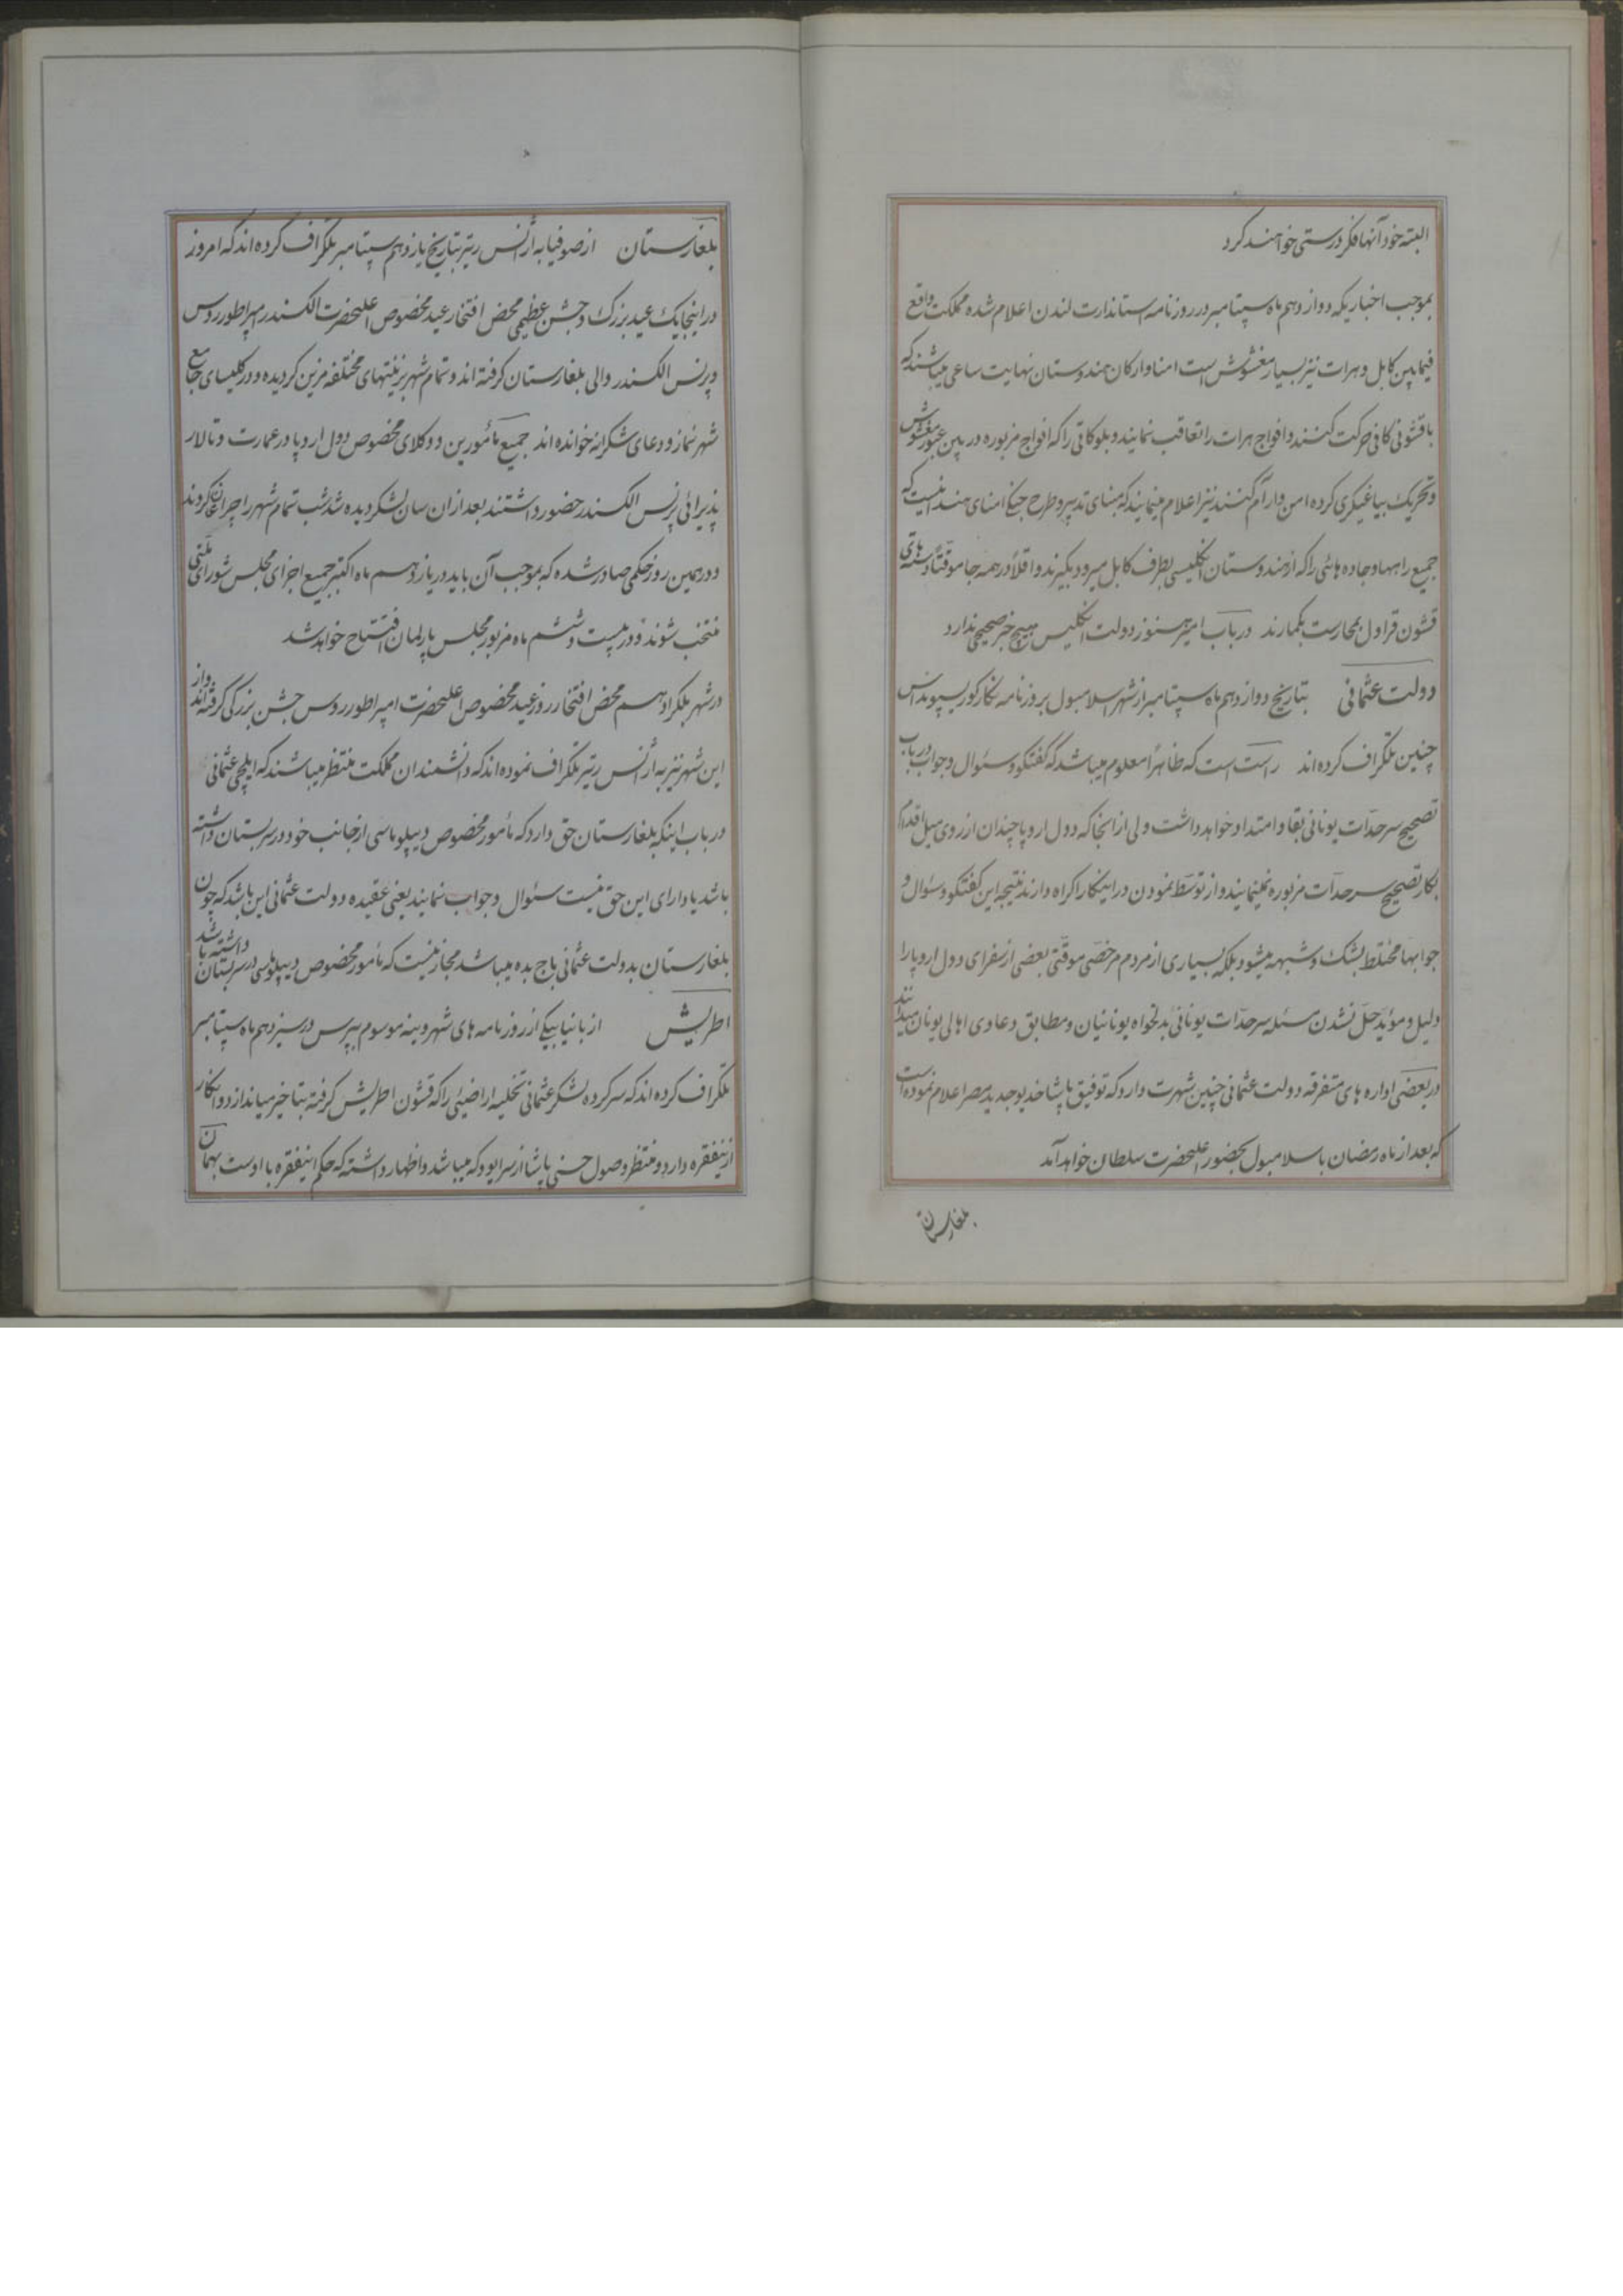 البته خود آنها فکر درستی خواهند کرد
بموجب اخباریکه دوازدهم ماه سپتامبر در روزنامه استاندارت لندن اعلام شده مملکت واقع
فیمابین کابل و هرات نیز بسیار مغشوش است امنا و ارکان هندوستان نهایت ساعی میباشند که
با قشونی کافی حرکت کنند و افواج هرات را تعاقب نمایند و بلوکاتی را که افواج مزبوره در بین عبور مغشوش
و تحریک بیاغیگری کرده امن و آرام کنند نیز اعلام مینمایند که بنای تدبیر و طرح جنگ امنای هند اینست که
جمیع راهها و جاده هائی را که از هندوستان انگلیسی بطرف کابل میرود بگیرند و اقلاً در همه جا موقتاً دسته های
قشون قراول بمحارست بگمارند در باب امیر هنوز دولت انگلیس هیچ خبر صحیحی ندارد
دولت عثمانی بتاریخ دوازدهم ماه سپتامبر از شهر اسلامبول بروزنامه نگار کورسپوندانس
چنین تلگراف کرده اند راست است که ظاهراً معلوم میباشد که گفتگو و سئوال و جواب در باب
تصحیح سرحدّات یونانی بقا و امتداد خواهد داشت ولی از آنجا که دول اروپا چندان از روی میل اقدام
بکار تصحیح سرحدّات مزبوره نمینمایند و از توسّط نمودن در اینکار اکراه دارند نتیجه این گفتگو و سئوال و
جوابها مختلط بشک و شبهه میشود بلکه بسیاری از مردم مرخصی موقّتی بعضی از سفرای دول اروپا را
دلیل و مؤیّد حلّ نشدن مسئله سرحدّات یونانی بدلخواه یونانیان و مطابق دعاوی اهالی یونان میدانند
در بعضی اداره های متفرقه دولت عثمانی چنین شهرت دارد که توفیق پاشا خدیو جدید مصر اعلام نموده است
که بعد از ماه رمضان باسلامبول بحضور اعلیحضرت سلطان خواهد آمد
بلغارستان
بلغارستان از صوفیا به آژانس ریتر بتاریخ یازدهم سپتامبر تلگراف کرده اند که امروز
در اینجا یک عید بزرک و جشن عظیمی محض افتخار عید مخصوص اعلیحضرت الکسندر امپراطور روس
و پرنس الکسندر والی بلغارستان گرفته اند و تمام شهر بزینتهای مختلفه مزین گردیده و در کلیسای جامع
شهر نماز و دعای شکرانه خوانده اند جمیع مأمورین و وکلای مخصوص دول اروپا در عمارت و تالار
پذیرائی پرنس الکسندر حضور داشتند بعد از ان سان لشکر دیده شد شب تمام شهر را چراغان کردند
و در همین روز حکمی صادر شده که بموجب آن باید در یازدهم ماه اکتبر جمیع اجزای مجلس شورای ملّتی
منتخب شوند و در بیست و ششم ماه مزبور مجلس پارلمان افتتاح خواهد شد
در شهر بلگراد هم محض افتخار روز عید مخصوص اعلیحضرت امپراطور روس جشن بزرگی گرفته اند و از
این شهر نیز به آژانس ریتر تلگراف نموده اند که دانشمندان مملکت منتظر میباشند که ایلچی عثمانی
در باب اینکه بلغارستان حق دارد که مأمور مخصوص دیپلوماسی از جانب خود در سربستان داشته
باشد یا دارای این حق نیست سئوال و جواب نمایند یعنی عقیده دولت عثمانی این باشد که چون
بلغارستان بدولت عثمانی باج بده میباشد مجاز نیست که مأمور مخصوص دیپلوماسی در سربستان داشته باشد
اطریش از بانیا بیکی از روزنامه های شهر وینه موسوم بپرس در سیزدهم ماه سپتامبر
تلگراف کرده اند که سرکرده لشکر عثمانی تخلیه اراضیئی را که قشون اطریش گرفته بتاخیر میاندازد و انکار
از اینفقره دارد و منتظر وصول حسنی پاشا از سرایوو که میباشد و اظهار داشته که حکم اینفقره با اوست بهمان